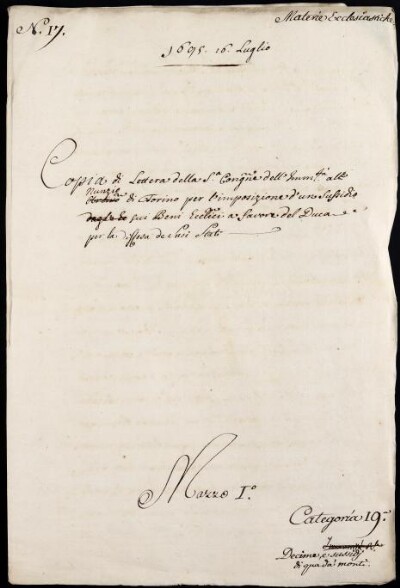 N. 17.
Materie Ecclesiastiche
1695. 16. Luglio
Copia di Lettera della S.ª Congñe dell'Imm.tà al
Nunzio di Torino per l'imposizione d'un Sussidio
sui Beni Ecclici a favore del Duca
per la diffesa de Suoi Stati
Mazzo I.º
Categoria 19.ª
Decime, e sussidj
di quà da' monti.